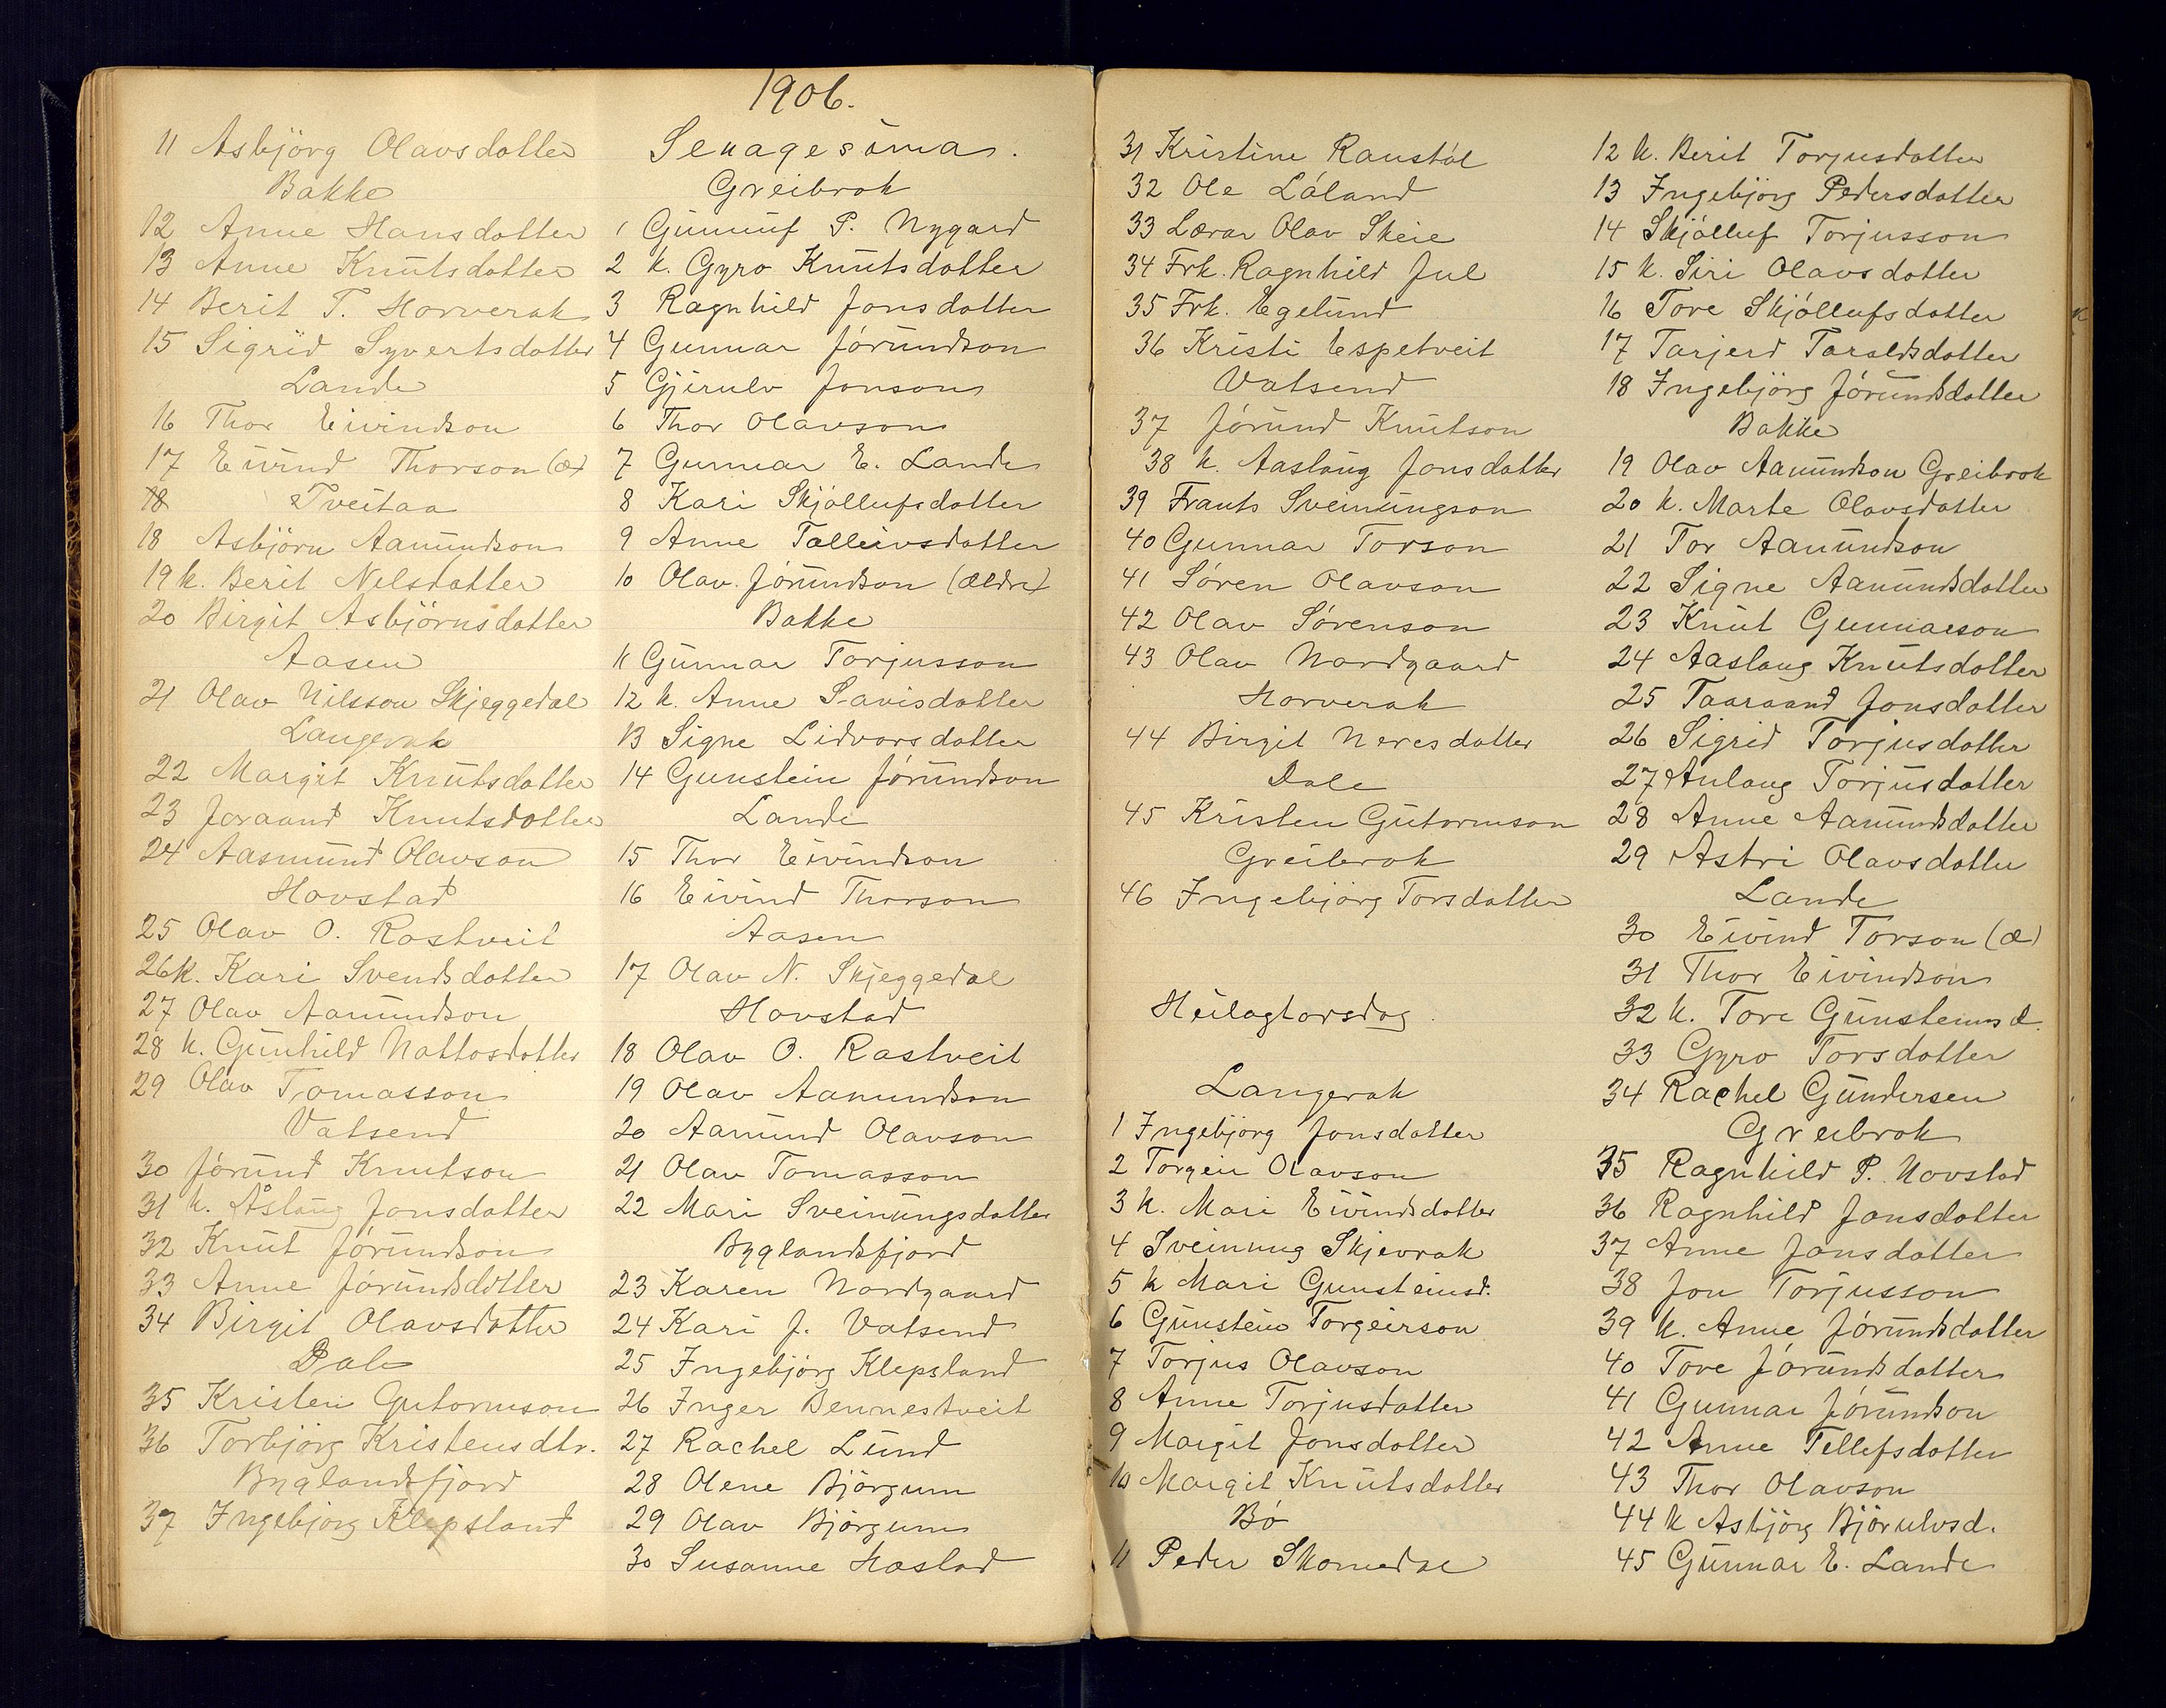 1906.
11 Asbjörg Olavsdotter
Bakke
12 Anne Hansdotter
13 Anne Knutsdotter
14 Berit T. Horverak
15 Sigrid Syvertsdotter
Lande
16 Thor Eivindson
17 Eivind Thorson (æ)
18 Tveitaa
18 Asbjörn Aamundson
19 k. Berit Nilsdotter
20 Birgit Asbjörnsdotter
Aasen
21 Olav Nilsson Skjeggedal
Langerak
22 Margit Knutsdotter
23 Joraand Knutsdotter
24 Aasmund Olavson
Hovstad
25 Olav O. Rostveit
26 k. Kari Svendsdotter
27 Olav Aamundson
28 k. Gunhild Nottosdotter
29 Olav Tomasson
Vatsend
30 Jórund Knutson
31 k. Åslaug Jonsdotter
32 Knut Jórundson
33 Anne Jórundsdotter
34 Birgit Olavsdotter
Dale
35 Kristen Gutormson
36 Torbjörg Kristensdtr.
Byglandsfjord
37 Ingebjörg Klepsland
Sexagesima.
Greibrok
1 Gunnuf P. Nygard
2 k. Gyro Knutsdotter
3 Ragnhild Jonsdotter
4 Gunnar Jórundson
5 Gjerulv Jonson
6 Thor Olavson
7 Gunnar E. Lande
8 Kari Skjóllufsdotter
9 Anne Talleivsdotter
10 Olav Jórundson (ældre)
Bakke
11 Gunnar Torjusson
12 k. Anne Savisdotter
13 Signe Lidvorsdotter
14 Gunstein Jórundson
Lande
15 Thor Eivindson
16 Eivind Thorson
Aasen
17 Olav N. Skjeggedal
Hovstad
18 Olav O. Rastveit
19 Olav Aamundson
20 Aamund Olavson
21 Olav Tomasson
22 Mari Sveinungsdotter
Byglandsfjord
23 Karen Nordgaard
24 Kari J. Vatsend
25 Ingebjörg Klepsland
26 Inger Bennestveit
27 Rachel Lund
28 Olene Björgum
29 Olav Björgum
30 Susanne Haslad
31 Kristine Raustól
32 Ole Lóland
33 Lærar Olav Skeie
34 Frk. Ragnhild Jul
35 Frk. Egelund
36 Kristi Espetveit
Vatsend
37 Jórund Knutson
38 k. Aaslaug Jonsdotter
39 Frants Sveinungson
40 Gunnar Torson
41 Sóren Olavson
42 Olav Sórenson
43 Olav Nordgaard
Horverak
44 Birgit Neresdotter
Dale
45 Kristen Gutormson
Greibrok
46 Ingebjörg Torsdotter
Heilagtorsdag.
Langerak
1 Ingebjörg Jonsdotter
2 Torgeir Olavson
3 k. Mari Eivindsdotter
4 Sveinung Skjevrak
5 k Mari Gunsteinsd.
6 Gunstein Torgeirson
7 Torjus Olavson
8 Anne Torjusdotter
9 Margit Jonsdotter
10 Margit Knutsdotter
Bó
11 Peder Skomedal
12 k. Berit Torjusdotter
13 Ingebjörg Pedersdotter
14 Skjólluf Torjusson
15 k. Siri Olavsdotter
16 Tore Skjóllufsdotter
17 Tarjerd Taraldsdotter
18 Ingebjörg Jórundsdotter
Bakke
19 Olav Aamundson Greibrok
20 k. Marte Olavsdotter
21 Tor Aamundson
22 Signe Aamundsdotter
23 Knut Gunnarson
24 Aaslaug Knutsdotter
25 Taaraand Jonsdotter
26 Sigrid Torjusdotter
27 Aulaug Torjusdotter
28 Anne Aamundsdotter
29 Astri Olavsdotter
Lande
30 Eivind Torson (æ)
31 Thor Eivindson
32 k. Tore Gunsteinsd.
33 Gyro Torsdotter
34 Rachel Gundersen
Greibrok
35 Ragnhild P. Hovstad
36 Ragnhild Jonsdotter
37 Anne Jonsdotter
38 Jon Torjusson
39 k. Anne Jórundsdotter
40 Tore Jórundsdotter
41 Gunnar Jórundson
42 Anne Tellefsdotter
43 Thor Olavson
44 k Asbjörg Björulvsd.
45 Gunnar E. Lande